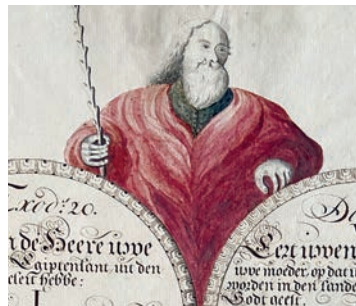 Exod: 20.
n de Heere uwe
Egiptenlant uit den
eleit hebbe:
I
De
Eert uwen
uwe moeder op dat u
worden in den lande
Godt geeft.